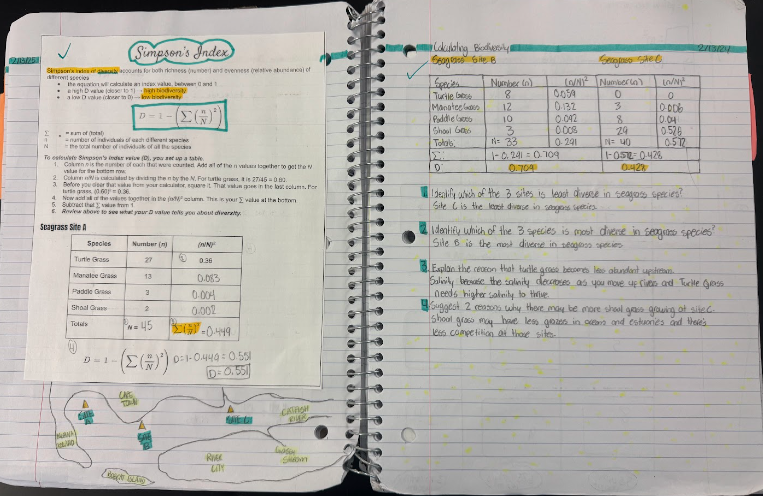 2/13/25
Simpson's Index
Simpson's index of diversity accounts for both richness (number) and evenness (relative abundance) of
different species
• the equation will calculate an index value, between 0 and 1
• a high D value (closer to 1) → high biodiversity
• a low D value (closer to 0) → low biodiversity
D = 1 − (Σ(n/N)²)
Σ = sum of (total)
n = number of individuals of each different species
N = the total number of individuals of all the species
To calculate Simpson's Index value (D), you set up a table.
1. Column n is the number of each that were counted. Add all of the n values together to get the N
value for the bottom row.
2. Column n/N is calculated by dividing the n by the N. For turtle grass, it is 27/45 = 0.60
3. Before you clear that value from your calculator, square it. That value goes in the last column. For
turtle grass, (0.60)² = 0.36.
4. Now add all of the values together in the (n/N)² column. This is your Σ value at the bottom
5. Subtract that Σ value from 1.
6. Review above to see what your D value tells you about diversity.
Seagrass Site A
Species Number (n) (n/N)²
Turtle Grass 27 0.36
Manatee Grass 13 0.083
Paddle Grass 3 0.004
Shoal Grass 2 0.002
Totals N = 45 Σ(n/N)² = 0.449
D = 1 − (Σ(n/N)²) D=1-0.449 = 0.551
D=0.551
SITE A
SITE B
SITE C
CATFISH RIVER
RIVER CITY
Calculating Biodiversity
2/13/25
Seagrass Site B Seagrass Site C
Species Number (n) (n/N)² Number(n) (n/N)²
Turtle Grass 8 0.059 0 0
Manatee Grass 12 0.132 3 0.006
Paddle Grass 10 0.092 8 0.04
Shoal Grass 3 0.008 29 0.526
Totals N= 33 0.291 N= 40 0.572
Σ 1-0.291 = 0.709 1-0.572=0.428
D 0.709 0.428
1. Identify which of the 3 sites is least diverse in seagrass species?
Site C is the least diverse in seagrass species.
2. Identify which of the 3 species is most diverse in seagrass species?
Site B is the most diverse in seagrass species
3. Explain the reason that turtle grass becomes less abundant upstream.
Salinity because the salinity decreases as you move up rivers and Turtle Grass
needs higher salinity to thrive.
4. Suggest 2 reasons why there may be more shoal grass growing at site C.
Shoal grass may have less grazers in oceans and estuaries and there's
less competition at those sites.